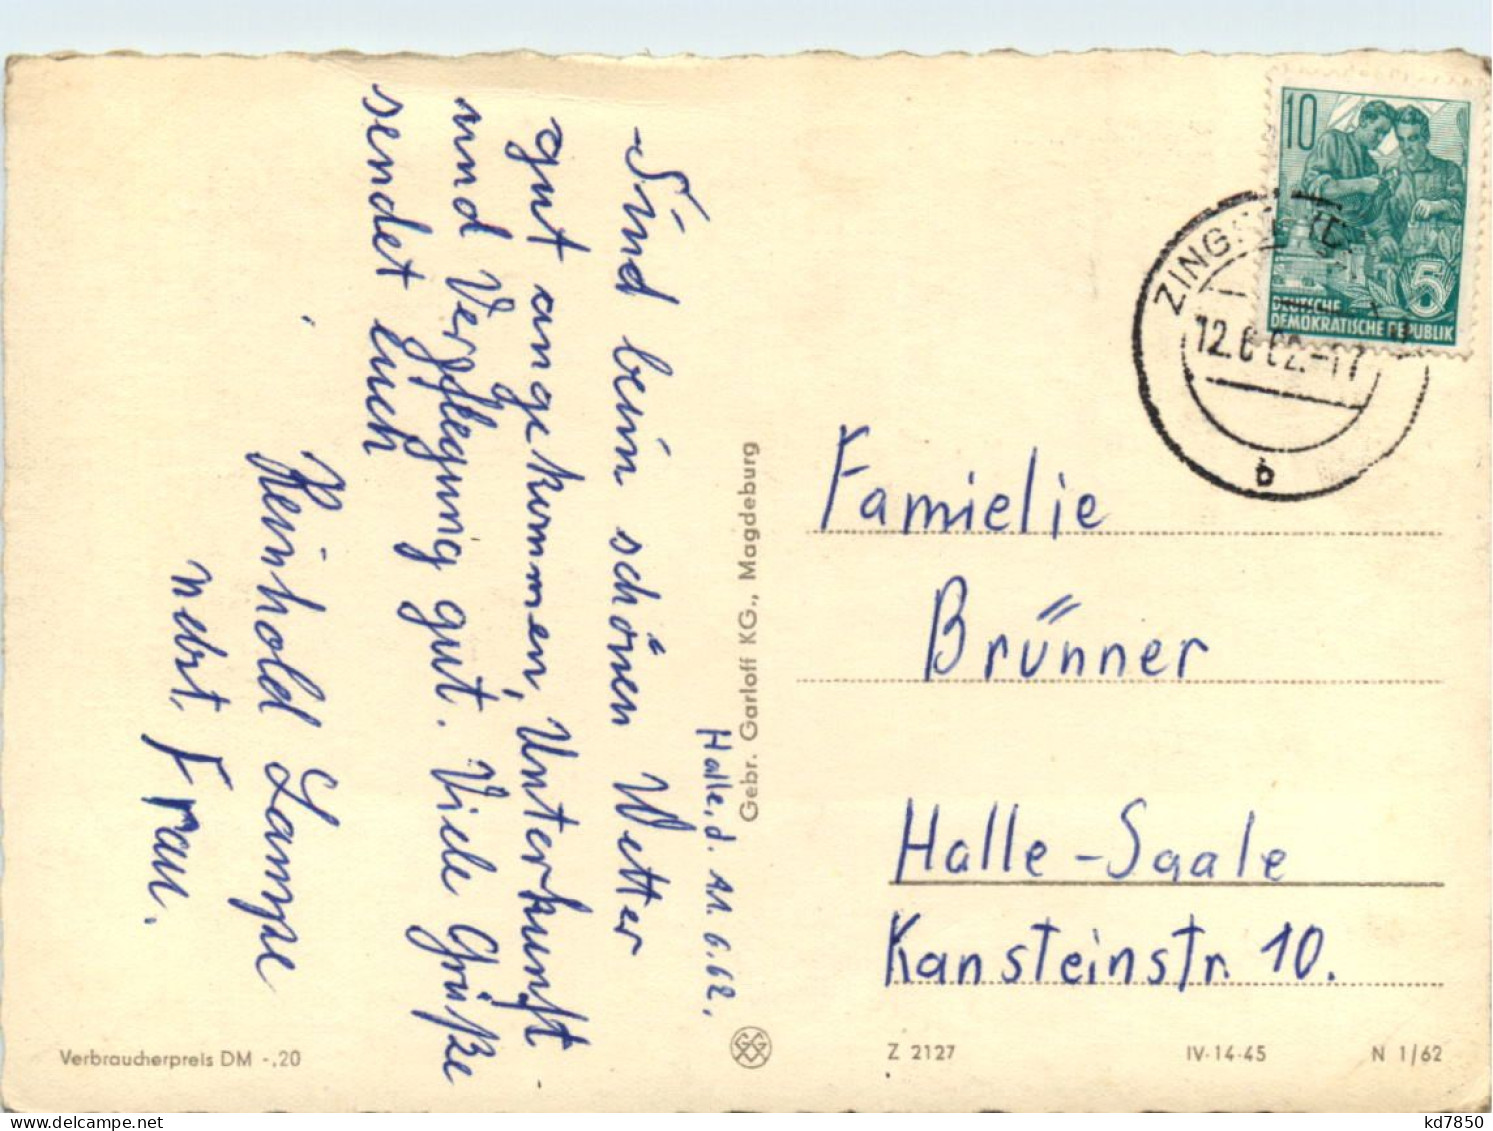 Halle, d. 11.6.62.
Sind beim schönen Wetter
gut angekommen, Unterkunft
und Verpflegung gut. Viele Grüße
sendet euch
Reinhold Lampe
nebst Frau.
Gebr. Garloff KG., Magdeburg
10
5
DEUTSCHE
DEMOKRATISCHE REPUBLIK
12.6.62.-17
b
Famielie
Brünner
Halle-Saale
Kansteinstr. 10.
Verbraucherpreis DM -.20
Z 2127
IV-14-45
N 1/62
kd7850